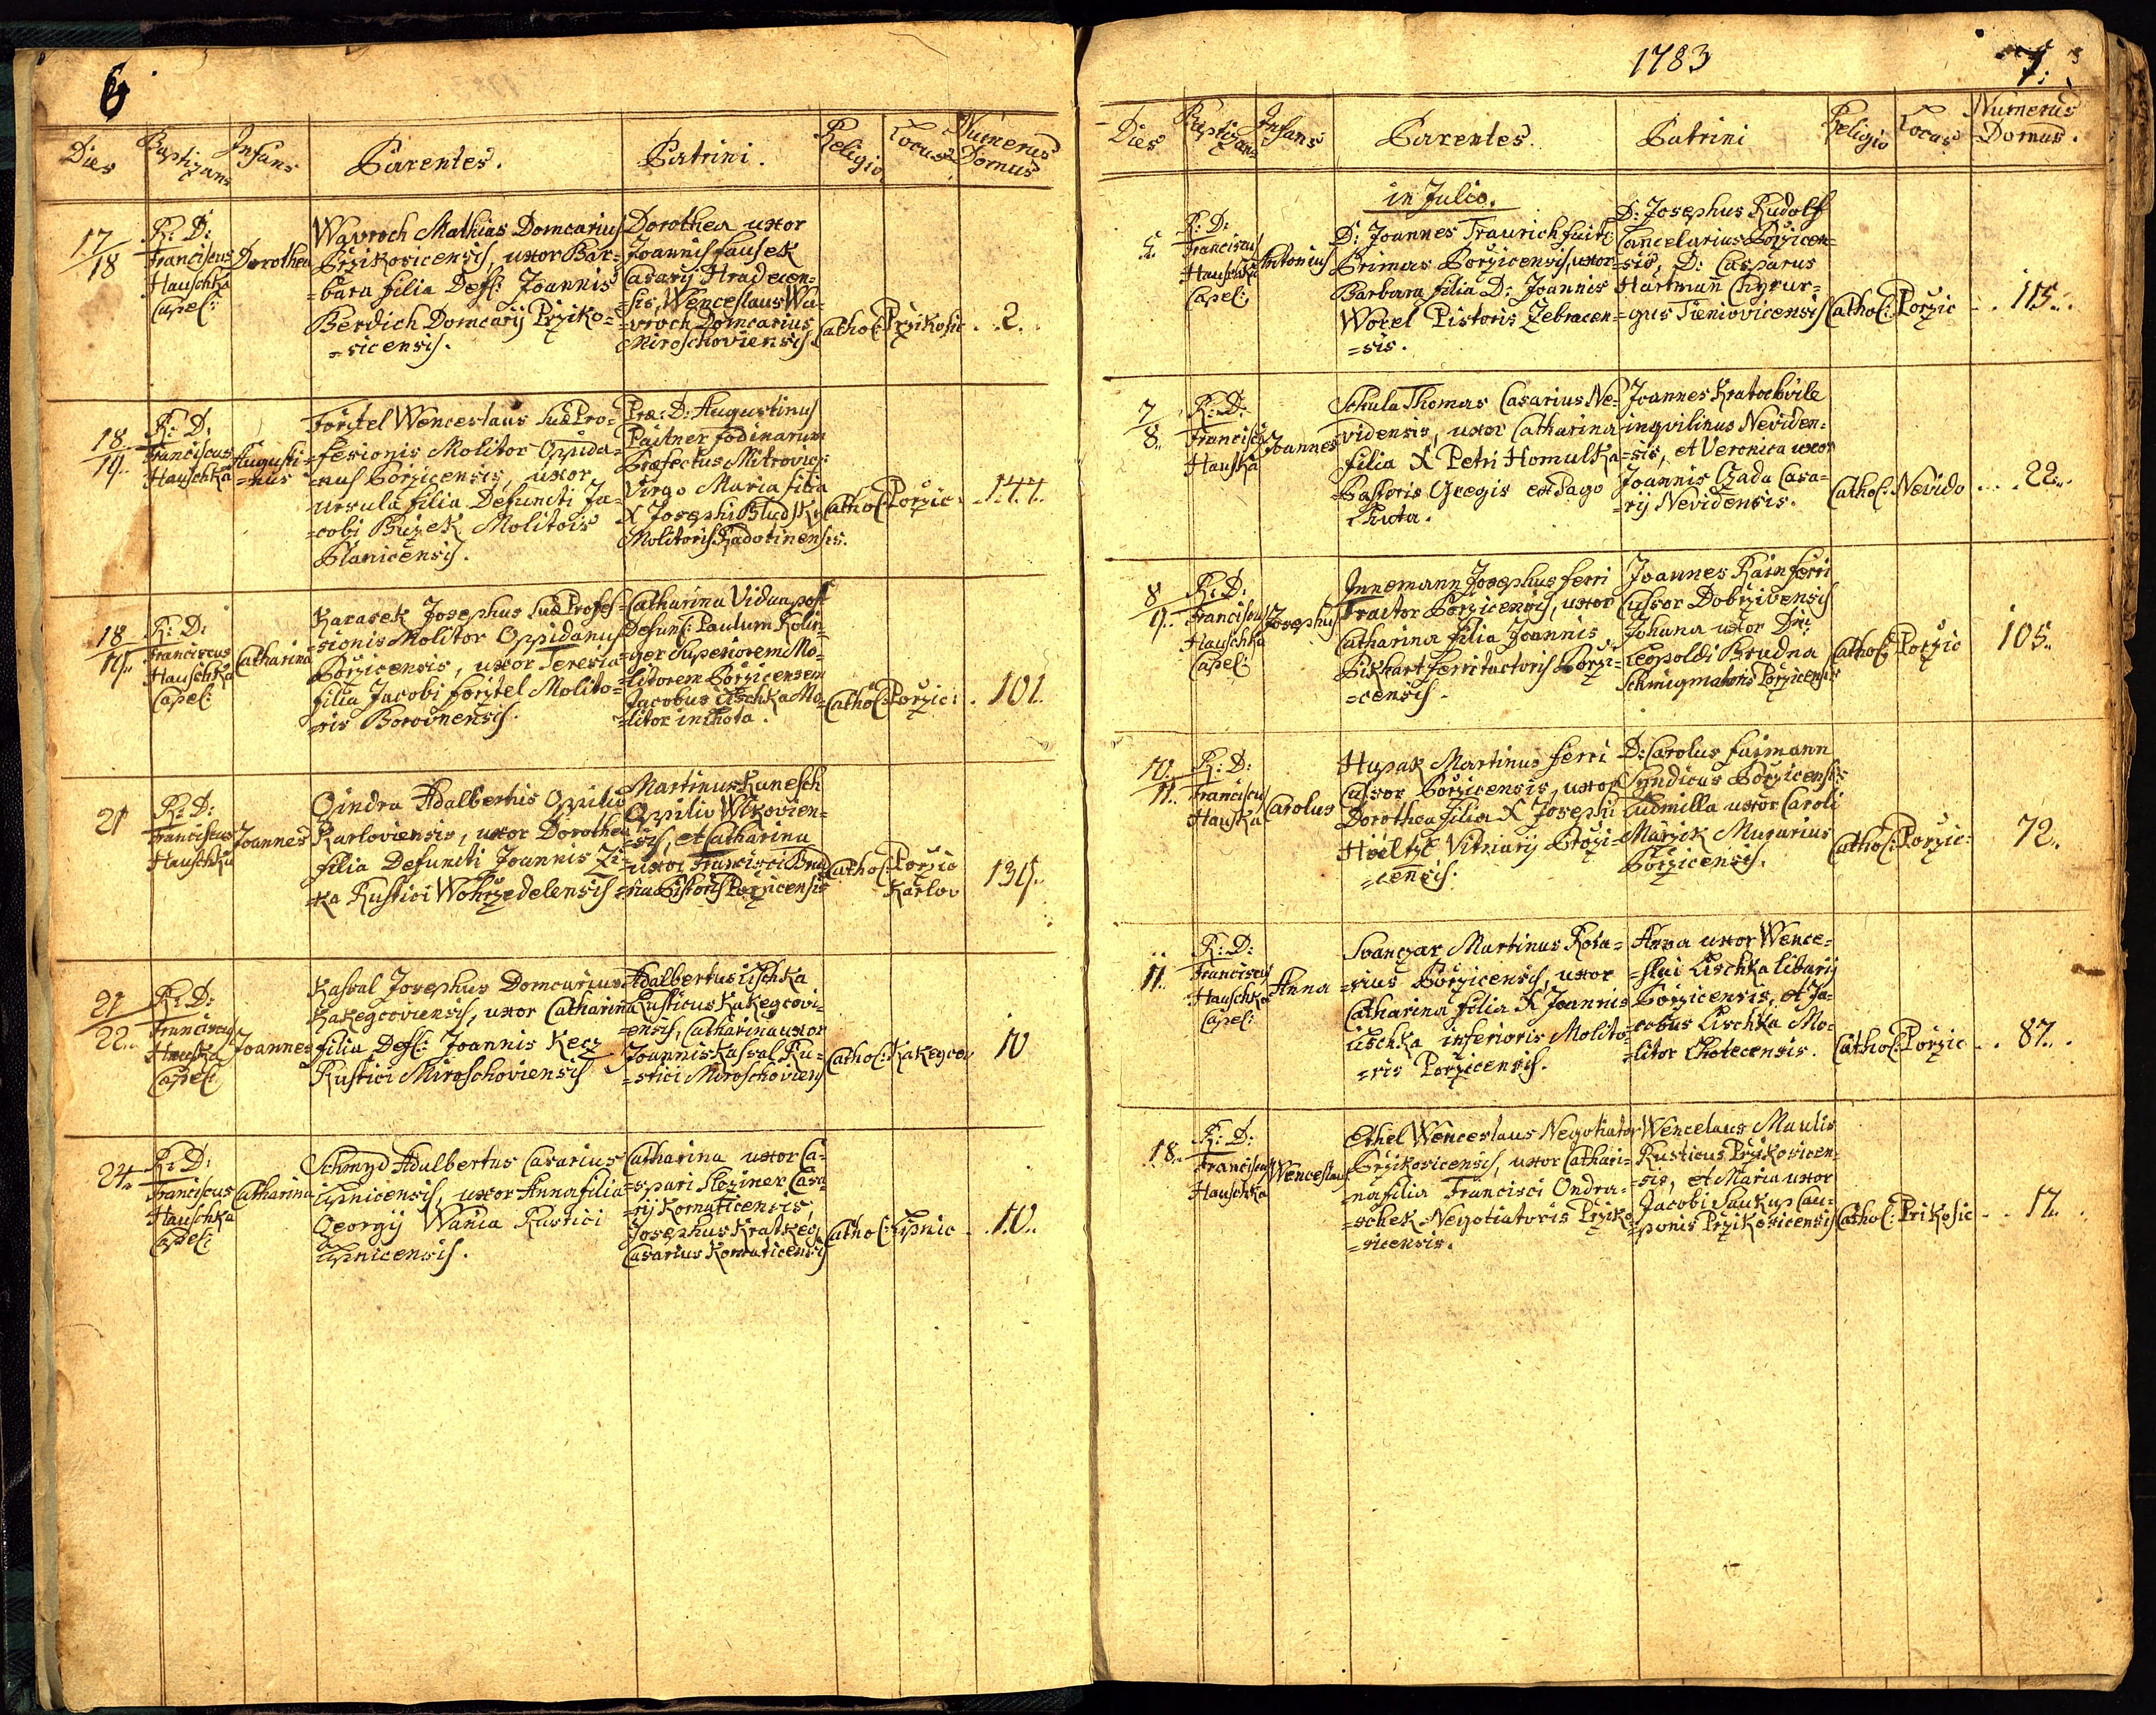 6
Dies Baptizans Infans Parentes. Patrini. Religio Locus Numerus Domus
17/18
R: D:
Franciscus
Hauschka
Capel:
Dorothea
Wavroch Mathias Domcarius
Przikosicensis, uxor Bar=
=bara filia Def: Joannis
Berdich Domcarij Prziko=
=sicensis.
Dorothea uxor
Joannis Fausek
Casarij Hradecen=
=sis, Wenceslaus Wa=
=vroch Domcarius
Miroschoviensis.
Cathol: Przikosic ..2..
18../19..
R: D:
Franciscus
Hauschka
Augusti=
=nus
Förstel Wenceslaus suæ Pro=
=fesionis Molitor Oppida=
=nus Porzicensis, uxor
Ursula filia Defuncti Ja=
=cobi Buzek Molitoris
Planicensis.
Præ: D: Augustinus
Paitner fodinarum
Præfectus Mitrovic:
Virgo Maria filia
X Josephi Bludsky
Molitoris Radotinensis.
Cathol: Porzic: ..144.
18/19..
R: D:
Franciscus
Hauschka
Capel:
Catharina
Karasek Josephus suæ Profes=
=sionis Molitor Oppidanus
Porzicensis, uxor Teresia
filia Jacobi Forstel Molito=
=ris Borovnensis.
Catharina Vidua post
Defunc: Paulum Kolin=
=ger Superiorem Mo=
=litorem Porzicensem
Jacobus Lischka Mo=
=litor in Lhota.
Cathol: Porzic: . 101.
21
R: D:
Franciscus
Hauschka
Joannes
Gindra Adalbertus Oppilio
Karloviensis, uxor Dorothea
filia Defuncti Joannis Zi=
=ka Rustici Wohrzedelensis
Martinus Kunesch
Oppilio Wlkovien=
=sis, et Catharina
uxor Francisci Brud=
=na Pistoris Porzicensis
Cathol: Porzic
Karlov
139..
21/22..
R: D:
Franciscus
Hauska
Capel:
Joannes
Kasval Josephus Domcarius
Kakegcoviensis, uxor Catharina
filia Def: Joannis Kecz
Rustici Miroschoviensis
Adalbertus Lischka
Rusticus Kakegcovi=
=ensis, Catharina uxor
Joannis Kasval Ru=
=stici Miroschoviens
Cathol: Kakegcov 10
24..
R: D:
Franciscus
Hauschka
Capel:
Catharina
Schmyd Adalbertus Casarius
Lipnicensis, uxor Anna filia
Georgij Wania Rustici
Lipnicensis.
Catharina uxor Ca=
=spari Sleziner Casa=
=rij Komaticensis,
Josephus Kratkey
Casarius Komaticensis
Cathol: Lipnic ..10..
1783
7.
Dies Baptizans Infans Parentes. Patrini Religio Locus Numerus Domus.
in Julio.
5.
R: D:
Franciscus
Hauschka
Capel:
Antonius
D: Joannes Traurich fuit
Primas Porzicensis, uxor
Barbara filia D: Joannis
Worel Pistoris Zebracen=
=sis.
D: Josephus Rudolf
Cancelarius Porzicen=
=sis, D: Casparus
Hartman Chyrur=
=gus Tieniovicensis
Cathol: Porzic ..115..
7/8..
R: D:
Franciscus
Hauska
Joannes
Schula Thomas Casarius Ne=
vidensis, uxor Catharina
filia X Petri Homulka
Pastoris Gregis ex Pago
Lhota.
Joannes Kratochvile
inqvilinus Neviden=
=sis, et Veronica uxor
Joannis Czada Casa=
=rij Nevidensis.
Cathol: Nevido ...22..
8/9..
R: D:
Franciscus
Hauschka
Capel:
Josephus
Innemann Josephus ferri
Tractor Porzicensis, uxor
Catharina filia Joannis
Pikhart ferri tractoris Porzi=
=censis.
Joannes Rain ferri
Cussor Dobrzivensis
Johana uxor Dni
Leopoldi Brudna
Schmigmatoris Porzicensis
Cathol: Porzic 105..
10./11..
R: D:
Franciscus
Hauska
Carolus
Hupak Martinus ferri
Cussor Porzicensis, uxor
Dorothea filia X Josephi
Höeltzl Vitriarij Porzi=
=censis.
D: Carolus Faimann
Syndicus Porzicensis
Ludmilla uxor Caroli
Marzik Murarius
Porzicensis.
Cathol: Porzic: 72..
11..
R: D:
Franciscus
Hauschka
Capel:
Anna
Svanzar Martinus Rota=
=rius Porzicensis, uxor
Catharina filia X Joannis
Lischka inferioris Molito=
=ris Porzicensis.
Anna uxor Wence=
=slai Lischka libarij
Porzicensis, et Ja=
=cobus Lischka Mo=
=litor Chotecensis.
Cathol: Porzic ..87..
18..
R: D:
Franciscus
Hauschka
Wenceslaus
Ethel Wenceslaus Negotiator
Przikosicensis, uxor Cathari=
na filia Francisci Ondra=
=schek Negotiatoris Prziko=
=sicensis.
Wencelaus Maulis
Rusticus Przikosicen=
=sis, et Maria uxor
Jacobi Saukup Cau=
=ponis Przikosicensis
Cathol: Prikosic ..17..